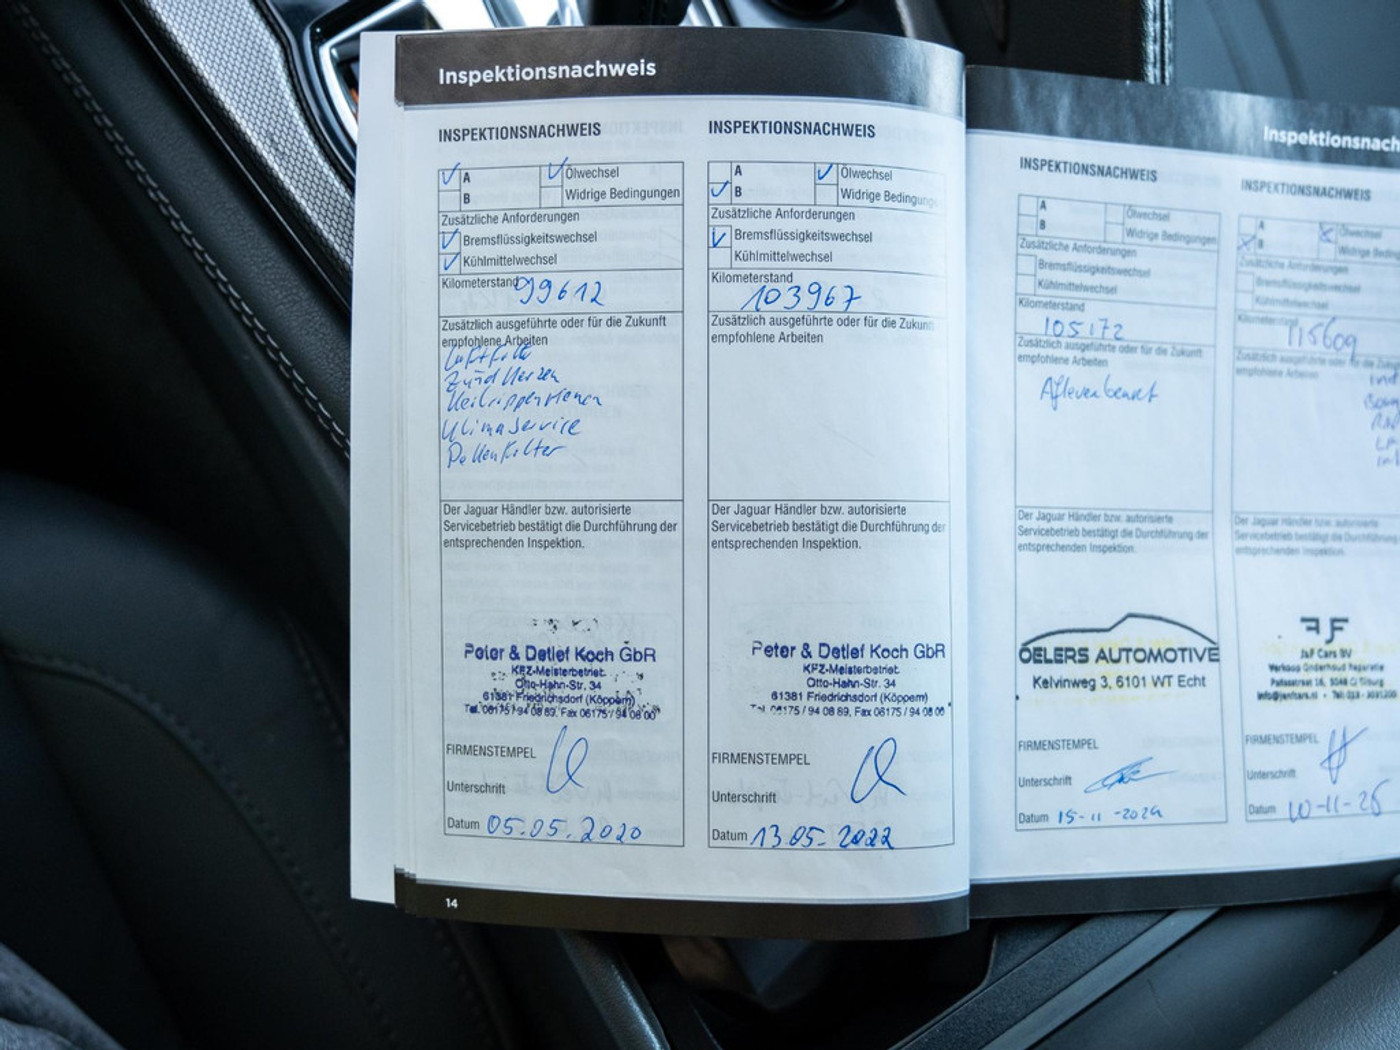 Inspektionsnachweis
INSPEKTIONSNACHWEIS
A
Ölwechsel
B
Widrige Bedingungen
Zusätzliche Anforderungen
Bremsflüssigkeitswechsel
Kühlmittelwechsel
Kilometerstand 99612
Zusätzlich ausgeführte oder für die Zukunft
empfohlene Arbeiten
Luftfilter
Zündkerzen
Keilrippenriemen
Klimaservice
Pollenfilter
Der Jaguar Händler bzw. autorisierte
Servicebetrieb bestätigt die Durchführung der
entsprechenden Inspektion.
Peter & Detlef Koch GbR
KFZ-Meisterbetrieb
Otto-Hahn-Str. 34
61381 Friedrichsdorf (Köppern)
Tel. 06175 / 94 08 89, Fax 06175 / 94 08 00
FIRMENSTEMPEL
Unterschrift
Datum 05.05.2020
14
INSPEKTIONSNACHWEIS
A
Ölwechsel
B
Widrige Bedingungen
Zusätzliche Anforderungen
Bremsflüssigkeitswechsel
Kühlmittelwechsel
Kilometerstand
103967
Zusätzlich ausgeführte oder für die Zukunft
empfohlene Arbeiten
Der Jaguar Händler bzw. autorisierte
Servicebetrieb bestätigt die Durchführung der
entsprechenden Inspektion.
Peter & Detlef Koch GbR
KFZ-Meisterbetrieb
Otto-Hahn-Str. 34
61381 Friedrichsdorf (Köppern)
Tel. 06175 / 94 08 89, Fax 06175 / 94 08 00
FIRMENSTEMPEL
Unterschrift
Datum 13.05.2022
Inspektionsnach
INSPEKTIONSNACHWEIS
A
Ölwechsel
B
Widrige Bedingungen
Zusätzliche Anforderungen
Bremsflüssigkeitswechsel
Kühlmittelwechsel
Kilometerstand
105172
Zusätzlich ausgeführte oder für die Zukunft
empfohlene Arbeiten
Afleverbeurt
Der Jaguar Händler bzw. autorisierte
Servicebetrieb bestätigt die Durchführung der
entsprechenden Inspektion.
OELERS AUTOMOTIVE
Kelvinweg 3, 6101 WT Echt
FIRMENSTEMPEL
Unterschrift
Datum 15-11-2024
INSPEKTIONSNACHWEIS
A
Ölwechsel
B
Widrige Beding
Zusätzliche Anforderungen
Bremsflüssigkeitswechsel
Kühlmittelwechsel
Kilometerstand
115609
Zusätzlich ausgeführte oder für die Zuk
empfohlene Arbeiten
Der Jaguar Händler bzw. autorisierte
Servicebetrieb bestätigt die Durchführung
entsprechenden Inspektion.
J&F Cars BV
Verkoop Onderhoud Reparatie
FIRMENSTEMPEL
Unterschrift
Datum 10-11-25